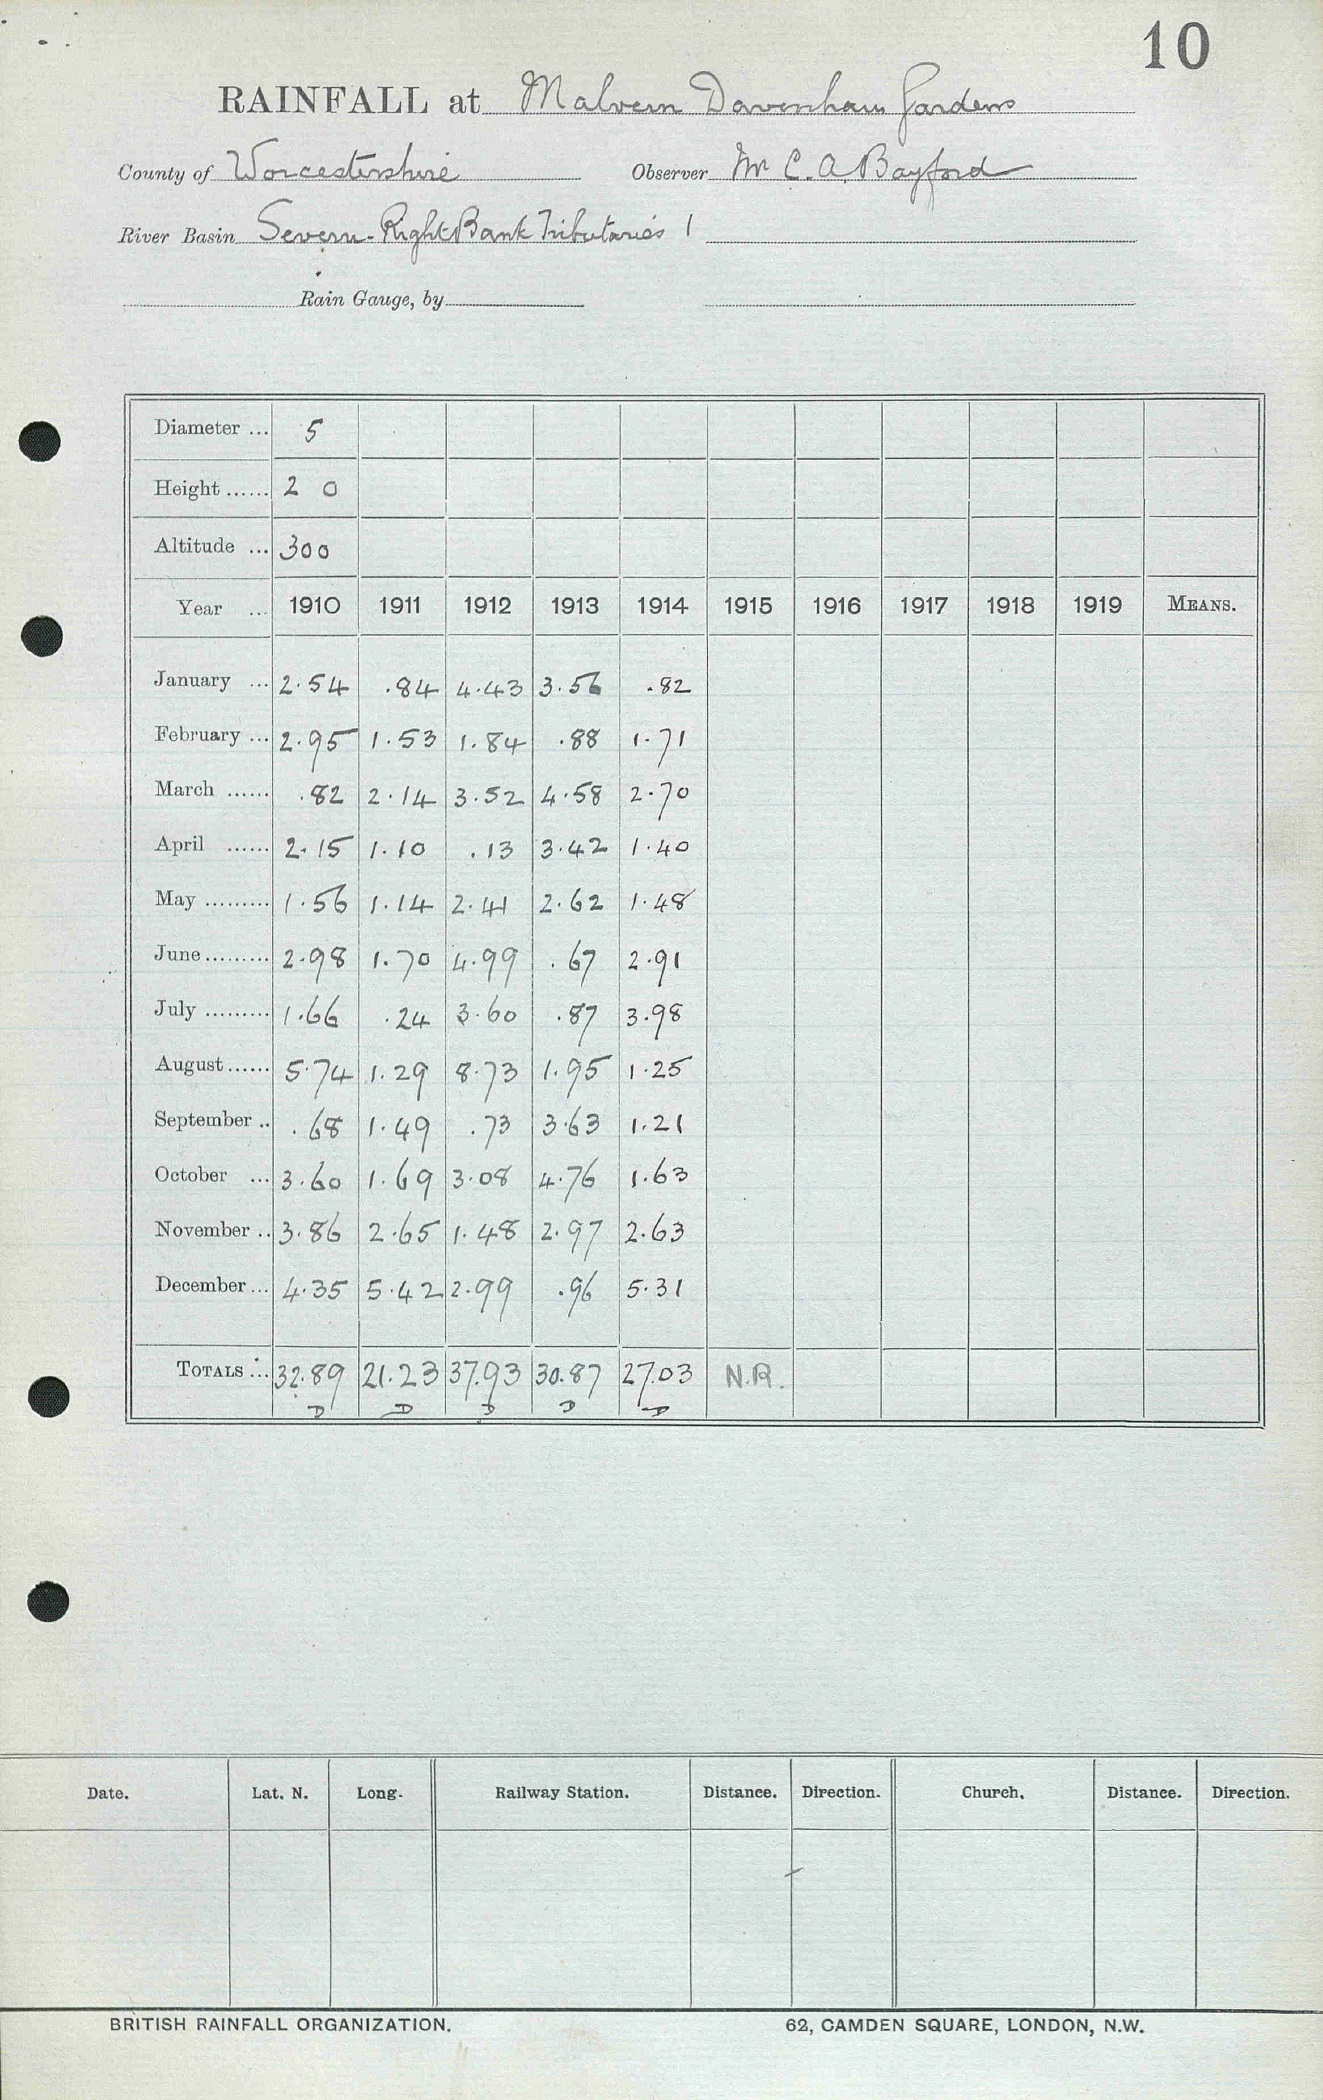 10
RAINFALL at Malvern Davenham Gardens
County of Worcestershire Observer Mr C. A. Bayford
River Basin Severn-Right Bank Tributaries 1
Rain Gauge, by
Diameter ... 5
Height ...... 2 0
Altitude ... 300
Year ... 1910 1911 1912 1913 1914 1915 1916 1917 1918 1919 MEANS.
January ... 2.54 .84 4.43 3.56 .82
February ... 2.95 1.53 1.84 .88 1.71
March ...... .82 2.14 3.52 4.58 2.70
April ...... 2.15 1.10 .13 3.42 1.40
May ......... 1.56 1.14 2.41 2.62 1.48
June ......... 2.98 1.70 4.99 .67 2.91
July ......... 1.66 .24 3.60 .87 3.98
August ...... 5.74 1.29 8.73 1.95 1.25
September .. .68 1.49 .73 3.63 1.21
October ... 3.60 1.69 3.08 4.76 1.63
November .. 3.86 2.65 1.48 2.97 2.63
December ... 4.35 5.42 2.99 .96 5.31
TOTALS ... 32.89 21.23 37.93 30.87 27.03 N.R.
D D D D D
Date. Lat. N. Long. Railway Station. Distance. Direction. Church. Distance. Direction.
BRITISH RAINFALL ORGANIZATION. 62, CAMDEN SQUARE, LONDON, N.W.